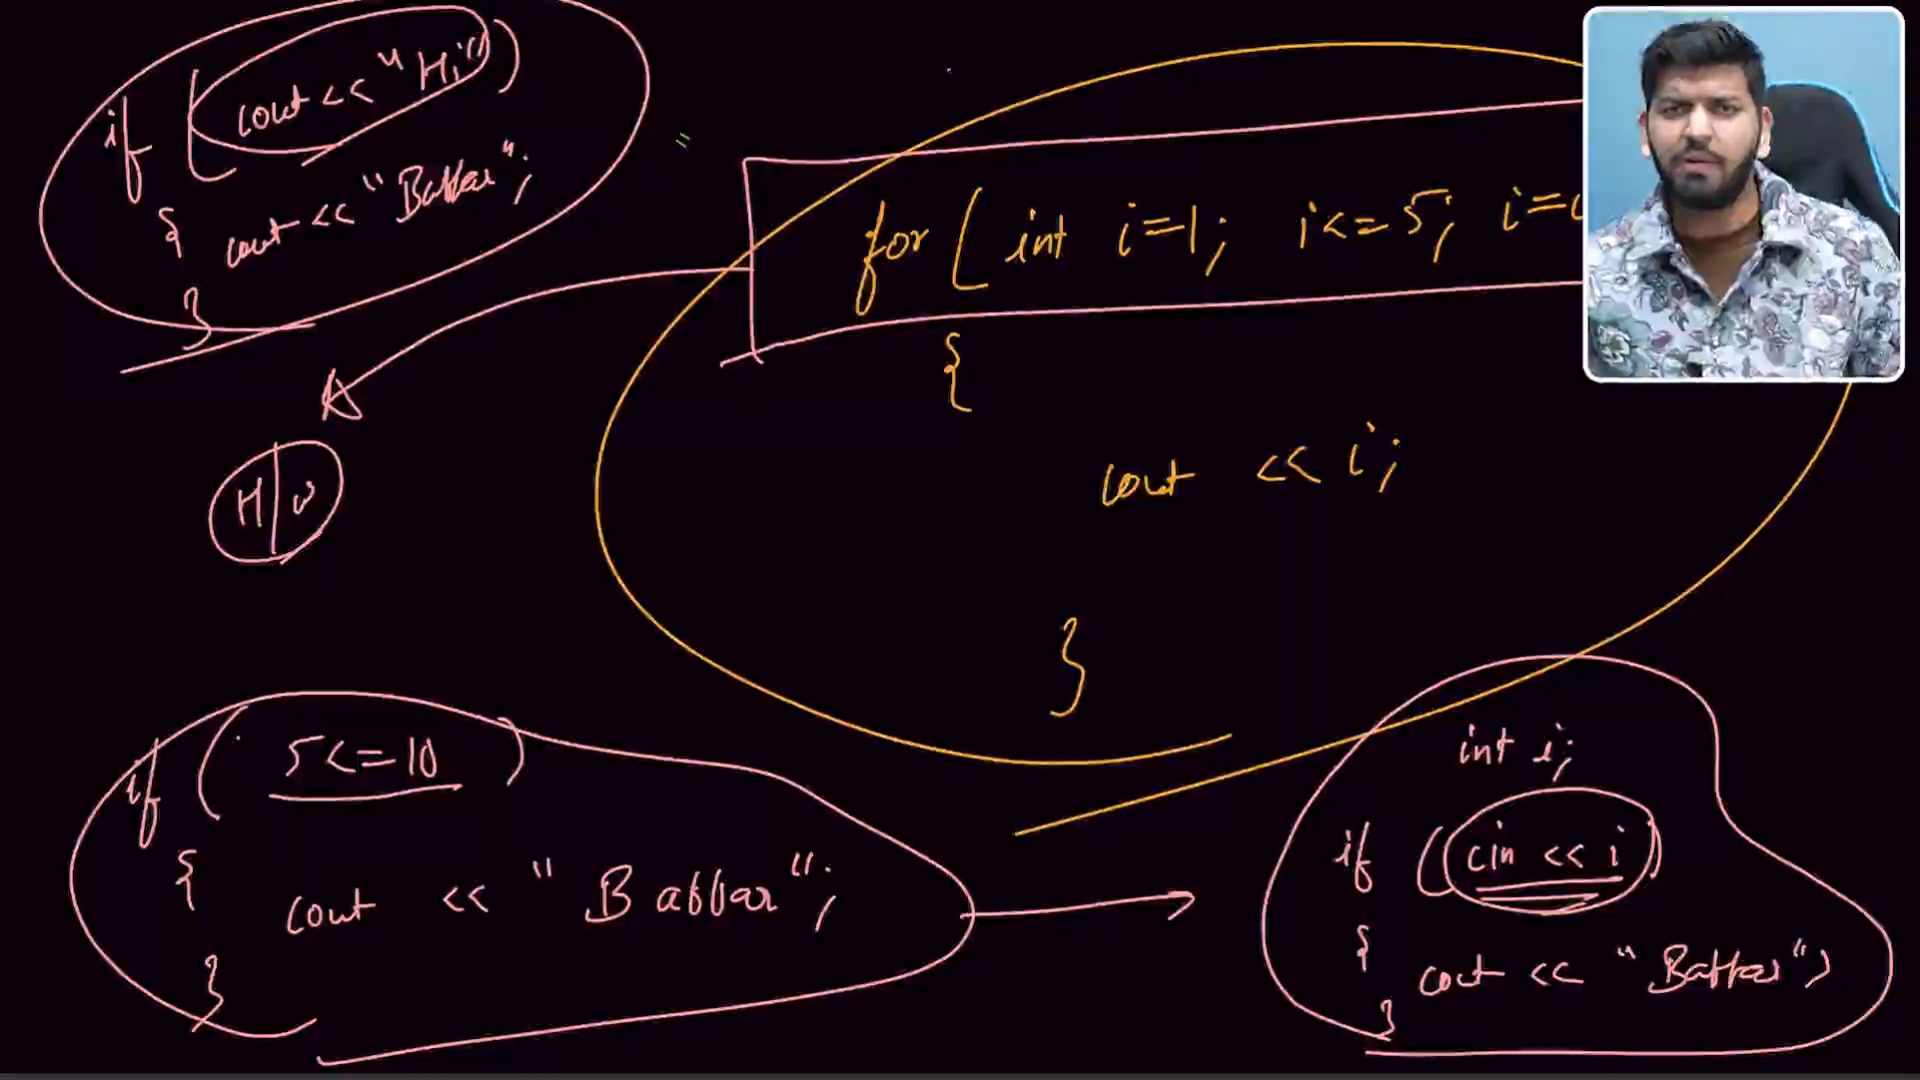 if (cout << "Hi")
{ cout << "Babbar";
}
for ( int i=1; i<=5; i=
{
cout << i;
}
H/W
if ( 5<=10 )
{
cout << "Babbar";
}
int i;
if (cin << i)
{ cout << "Babbar")
}